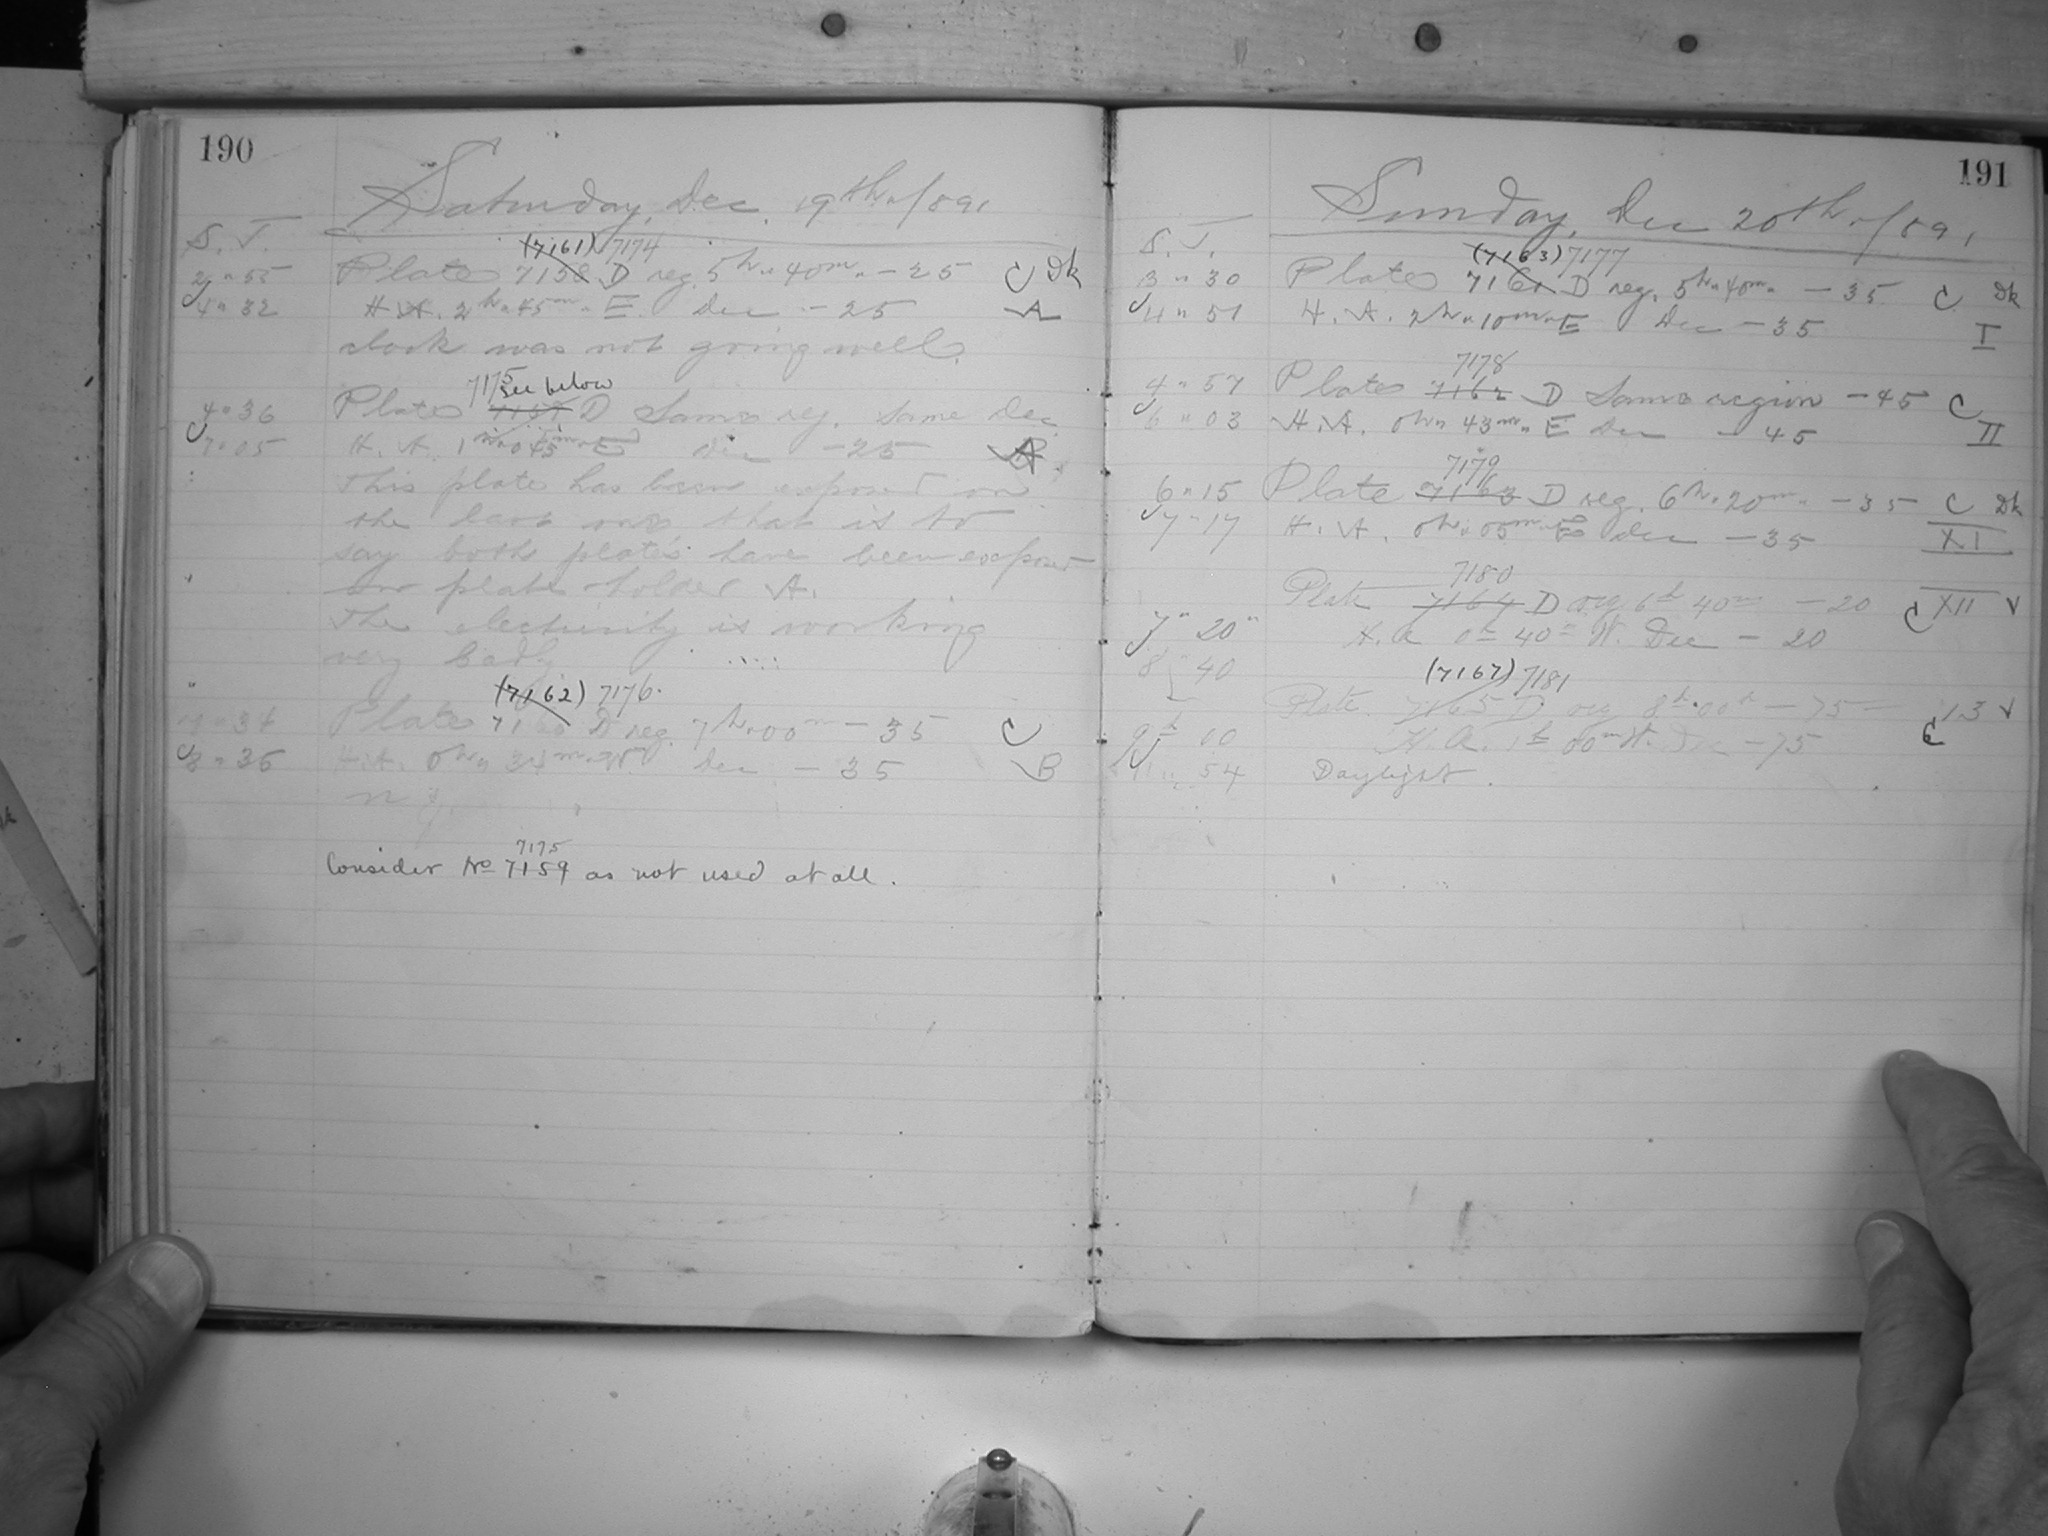 190
Saturday, Dec. 19th 1891
S. T.
(7161) 7174
2 " 55 Plate 7158 D reg. 5h " 40m " -25 C Dk
4 " 32 H. A. 2h " 45m " E. Dec -25 A
clock was not going well.
7175 See below
4 " 36 Plate 7159 D Same reg. same Dec
7 " 05 H. A. 1 E dec -25
This plate has been exposed on
the that is to
say both plates have been exposed
in plate-holder A.
The electricity is working
very badly
(7162) 7176.
7 " 34 Plate 7160 D reg. 7h " 00m -35 C
8 " 36 H. A. 0h " 34m W dec -35 B
7175
Consider No 7159 as not used at all.
191
Sunday, Dec 20th 1891
S. T.
(7163) 7177
3 " 30 Plate 7161 D reg. 5h " 40m " -35 C Dk
4 " 51 H. A. 2h " 10m " E Dec -35 I
7178
4 " 57 Plate 7162 D Same region -45 C
6 " 03 H. A. 0h " 43m " E Dec -45 II
7179
6 " 15 Plate 7163 D reg. 6h " 20m " -35 C Dk
7 " 17 H. A. 0h " 05m " E dec -35 XI
7180
Plate 7164 D reg 6h 40m -20 C XII v
7 " 20 " H. A 0h 40m W. Dec -20
8 " 40
(7167) 7181
Plate 7165 D reg 8h 00m -75 C 13 v
9h 00 H. A. 1h 00m W. Dec -75
11 " 54 Daylight.